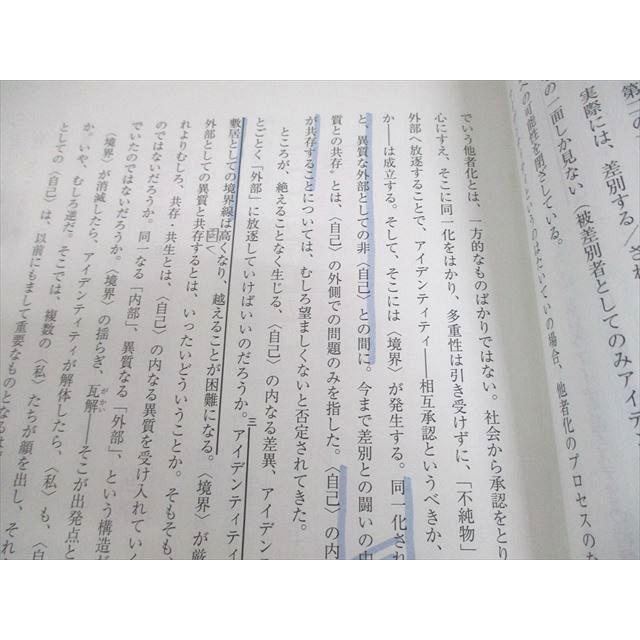 第二の
実際には、差別する／され
の一面しか見ない（被差別者としてのみアイデ
の可能性を閉ざしている。
たいていの場合、他者化のプロセスのな
でいう他者化とは、一方的なものばかりではない。社会から承認をとり
心にすえ、そこに同一化をはかり、多重性は引き受けずに、「不純物」
外部へ放逐することで、アイデンティティ――相互承認というべきか、
か――は成立する。そして、そこには〈境界〉が発生する。同一化され
と、異質な外部としての非〈自己〉との間に。今まで差別との闘いの中
質との共存〟とは、〈自己〉の外側での問題のみを指した。〈自己〉の内
が共存することについては、むしろ望ましくないと否定されてきた。
ところが、絶えることなく生じる、〈自己〉の内なる差異、アイデン
とごとく「外部」に放逐していけばいいのだろうか。アイデンティティ
三
敷居としての境界線は高くなり、越えることが困難になる。〈境界〉が厳
外部としての異質と共存するとは、いったいどういうことか。そもそも、
れよりむしろ、共存・共生とは、〈自己〉の内なる異質を受け入れていく
のではないだろうか。同一なる「内部」、異質なる「外部」、という構造が
でいたのではないだろうか。〈境界〉の揺らぎ、瓦解――そこが出発点と
がかい
〈境界〉が消滅したら、アイデンティティが解体したら、〈私〉も、〈自
か。いや、むしろ逆だ。そこでは、複数の〈私〉たちが顔を出し、それ
としての〈自己〉は、以前にもまして重要なものとなるは